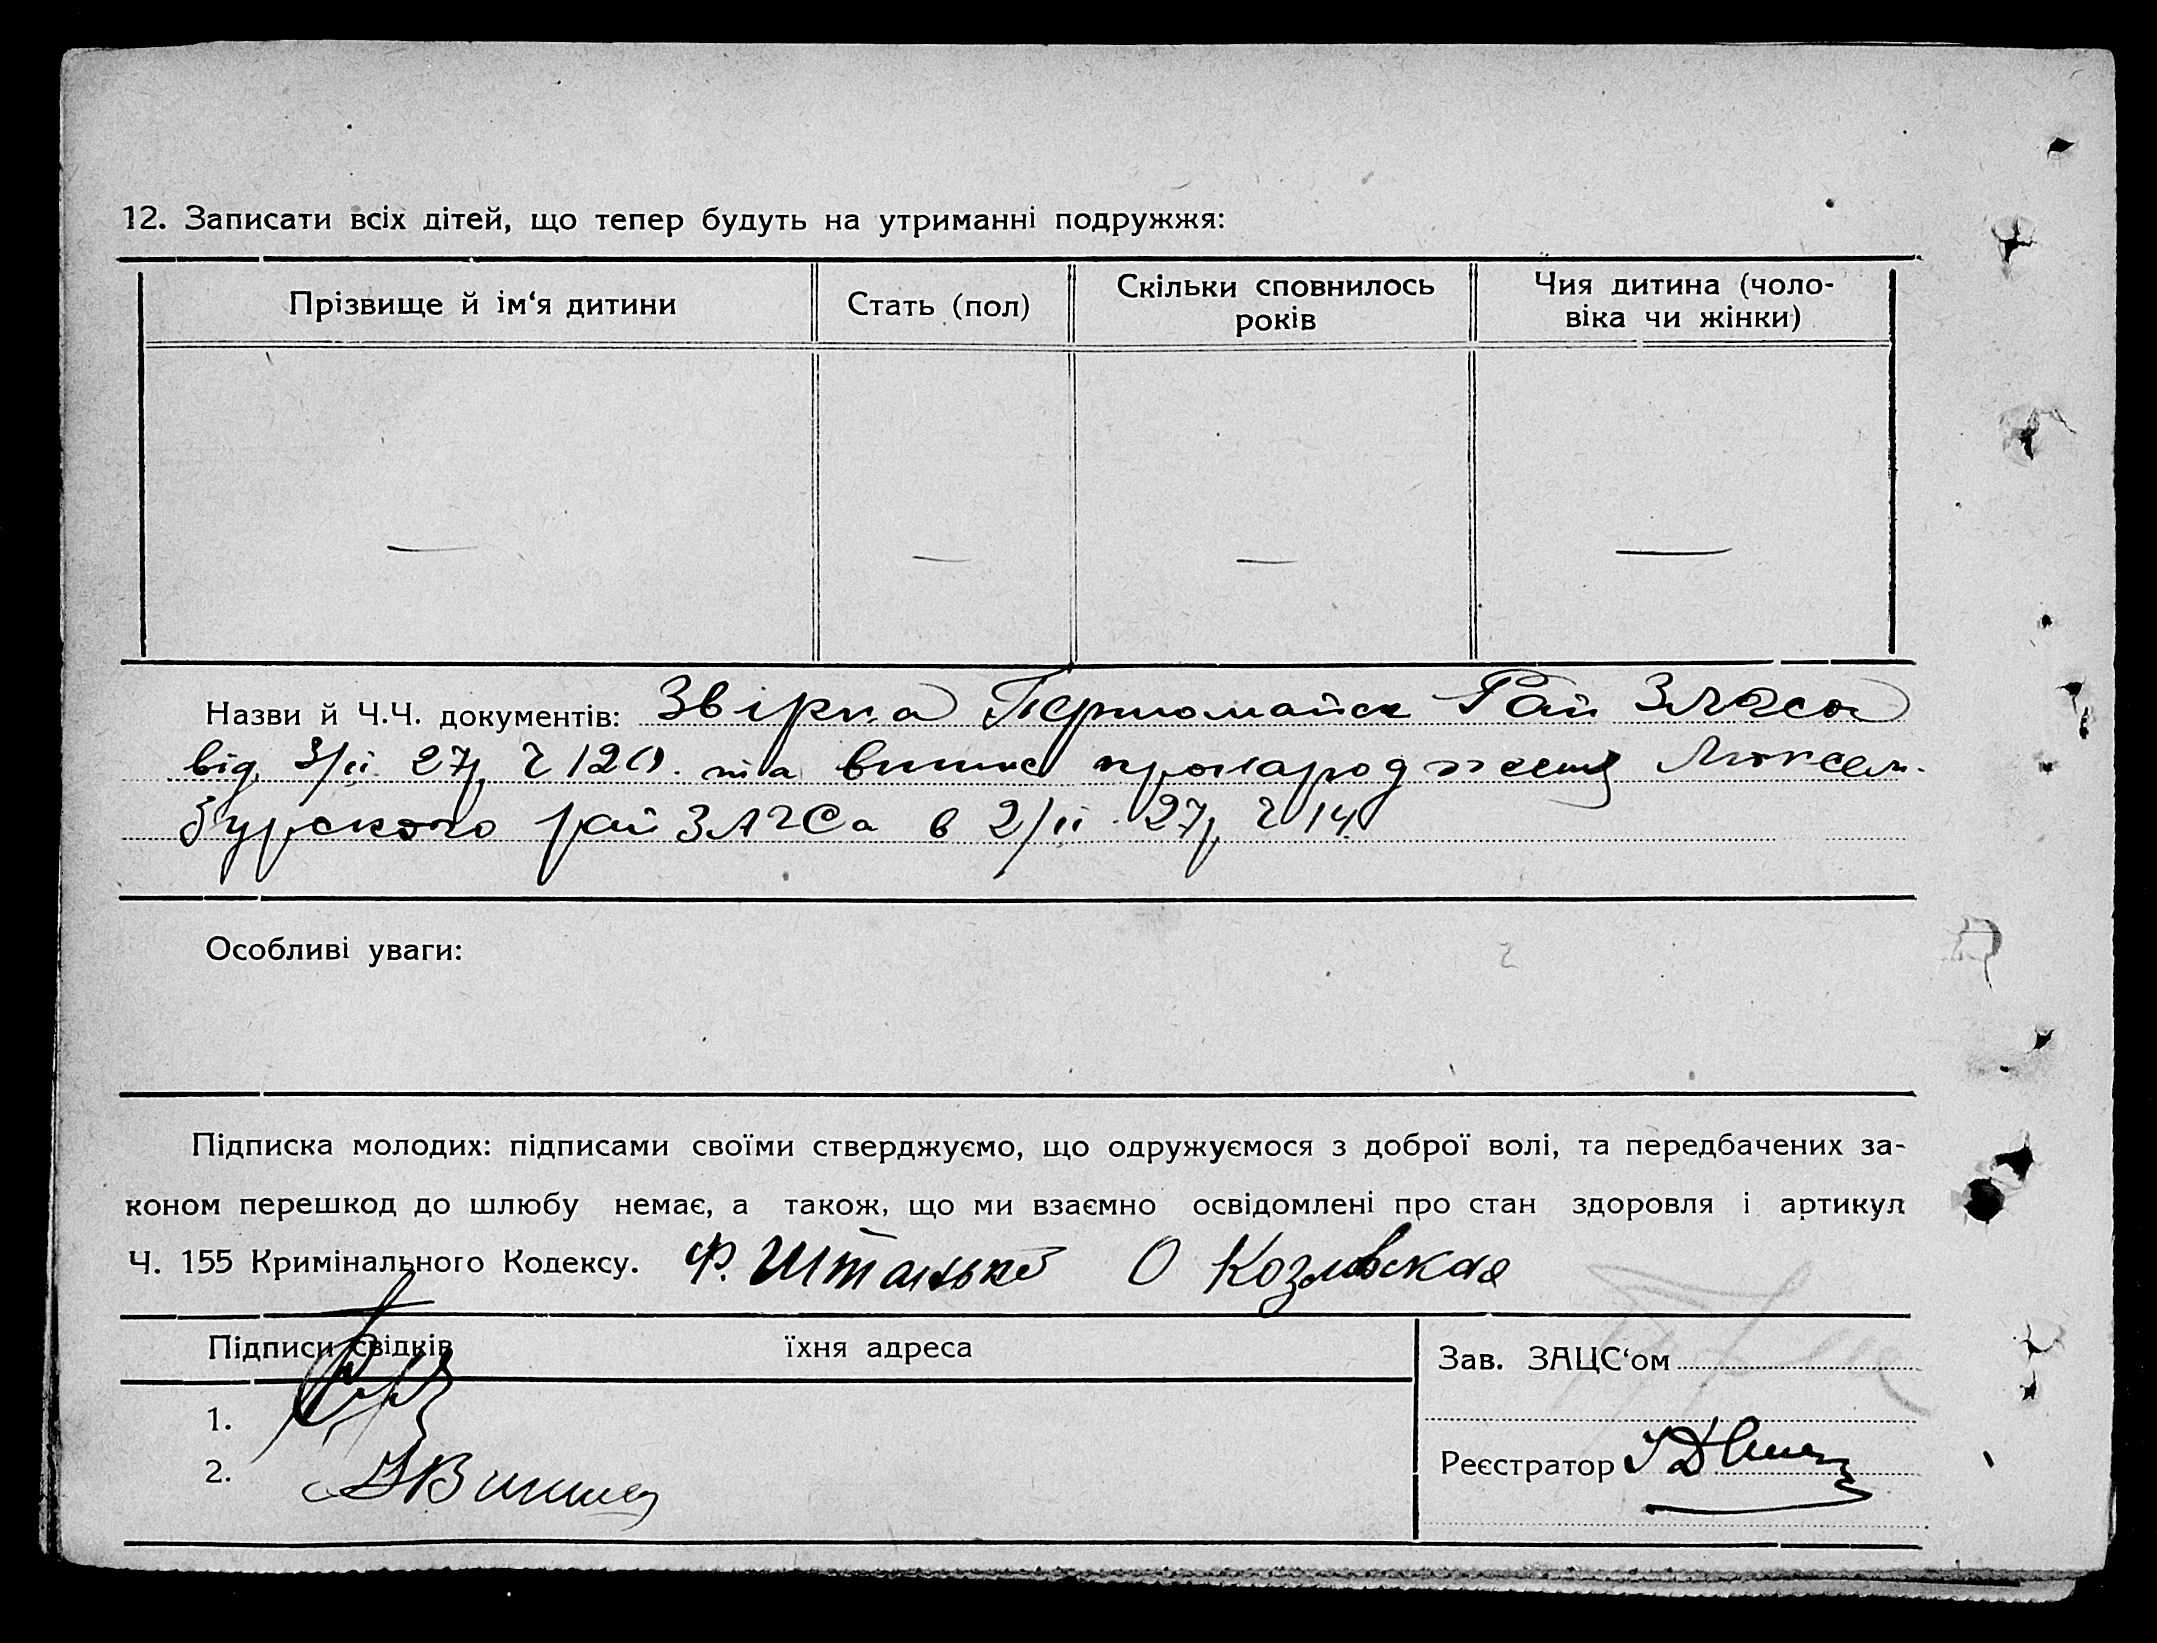 12. Записати всіх дітей, що тепер будуть на утриманні подружжя:
Прізвище й ім‘я дитини
Стать (пол)
Скільки сповнилось
років
Чия дитина (чоло-
віка чи жінки)
— — — —
Назви й Ч.Ч. документів: Звірка Первомайск Рай ЗАГСа
від 3/ii 27р ч 120 та випис про народження Люксем-
бурского рай ЗАГСа в 2/ii 27р ч 14
Особливі уваги:
Підписка молодих: підписами своїми стверджуємо, що одружуємося з доброї волі, та передбачених за-
коном перешкод до шлюбу немає, а також, що ми взаємно освідомлені про стан здоровля і артикул
Ч. 155 Кримінального Кодексу. Ф. Штанько О Козловская
Підписи свідків
їхня адреса
Зав. ЗАЦС‘ом
1.
Реєстратор
2.